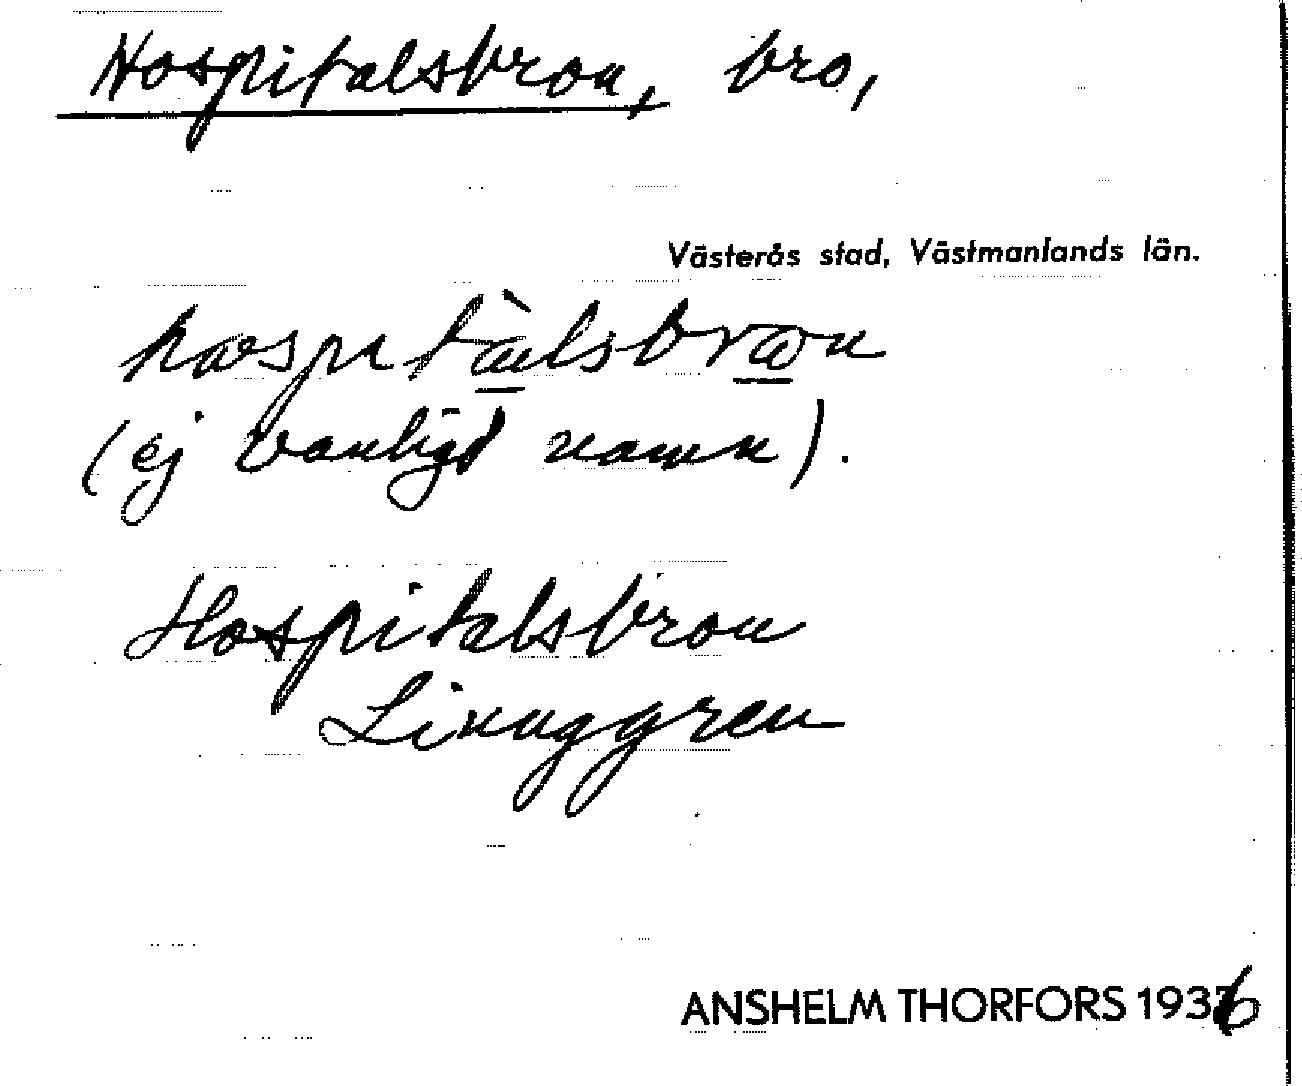 Hospitalsbron, bro,
Västerås stad, Västmanlands län.
hospitàlsbron
(ej vanligt namn).
Hospitalsbron
Linuggren
ANSHELM THORFORS 1936